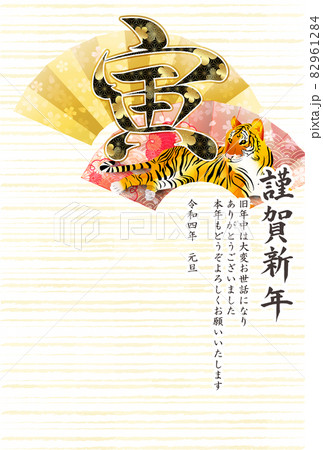 寅
謹賀新年
旧年中は大変お世話になり
ありがとうございました
本年もどうぞよろしくお願いいたします
令和四年　元旦
PIXTA
pixta.jp - 82961284